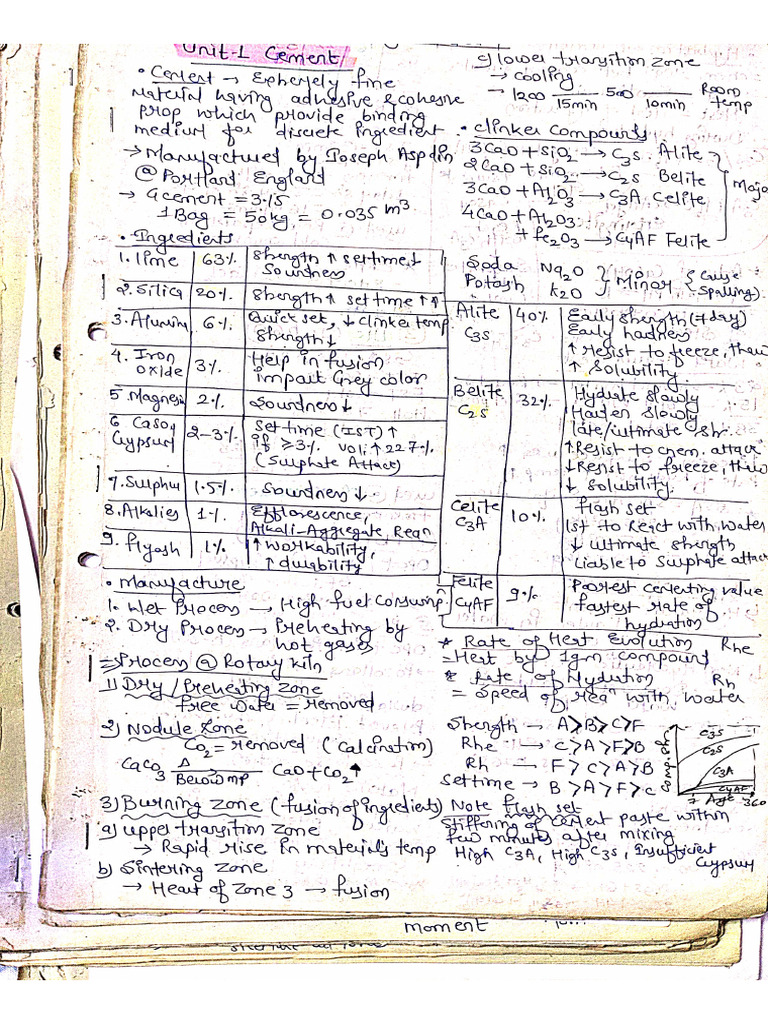 Unit-1 Cement
• Cement → Extremely fine
Material having adhesive & cohesive
prop which provide binding
medium for discrete ingredient.
→ Manufactured by Joseph Aspdin
@ Portland England
→ Gcement = 3.15
1 Bag = 50kg = 0.035 m³
• Ingredients
1. Lime 63% Strength ↑ settime↓ Soundness
2. Silica 20% Strength↑ set time ↑↑
3. Alumina 6% Quick set, ↓ clinker temp. Strength↓
4. Iron oxide 3% Help in fusion impart Grey color
5. Magnesia 2% Soundness ↓
6. CaSO4 Gypsum 2-3% Set time (IST) ↑ if ≥3% vol↑ 227% (Sulphate Attack)
7. Sulphur 1.5% Soundness ↓
8. Alkalies 1% Efflorescence, Alkali-Aggregate Rean
9. flyash 1% ↑ workability, ↑ durability
• Manufacture
1. Wet Process → High fuel consump
2. Dry Process → Preheating by
hot gases
⇒ Process @ Rotary kiln
1) Dry / Preheating zone
free water = removed
2) Nodule Zone
CO2 = removed (calcination)
CaCO3 Δ Below mp → CaO + CO2 ↑
3) Burning Zone (fusion of ingredients)
a) upper transition zone
→ Rapid rise in material's temp
b) Sintering Zone
→ Heart of zone 3 → fusion
c) lower transition zone
→ cooling
→ 1200 15min 500 10min Room temp
• Clinker Compounds
3CaO + SiO2 → C3S Alite
2CaO + SiO2 → C2S Belite
3CaO + Al2O3 → C3A Celite
4CaO + Al2O3
+ Fe2O3 → C4AF Felite
Major
Soda Na2O
Potash K2O
Minor (Cause Spalling)
Alite C3S 40% Early strength (7 day)
Early hadness
↑ resist to freeze, thaw
↑ Solubility
Belite C2S 32% Hydrate slowly
Harden slowly
late/ultimate str.
↑ Resist to chem. attack
↓ Resist to freeze, thaw
↓ Solubility.
Celite C3A 10% flash set
1st to React with water
↓ ultimate strength
Liable to Sulphate attack
Felite C4AF 9% Poorest cementing value
fastest rate of
hydration
★ Rate of Heat Evolution Rhe
= Heat by 1gm compound
★ Rate of Hydration Rh
= Speed of Rean with water
Strength → A>B>C>F
Rhe → C>A>F>B
Rh → F>C>A>B
Set time → B>A>F>C
strength
C3S
C2S
C3A
C4AF
7 Age 360
Note flash set
Stiffening of cement paste within
few minutes after mixing
High C3A, High C3S, Insufficient
Gypsum
moment